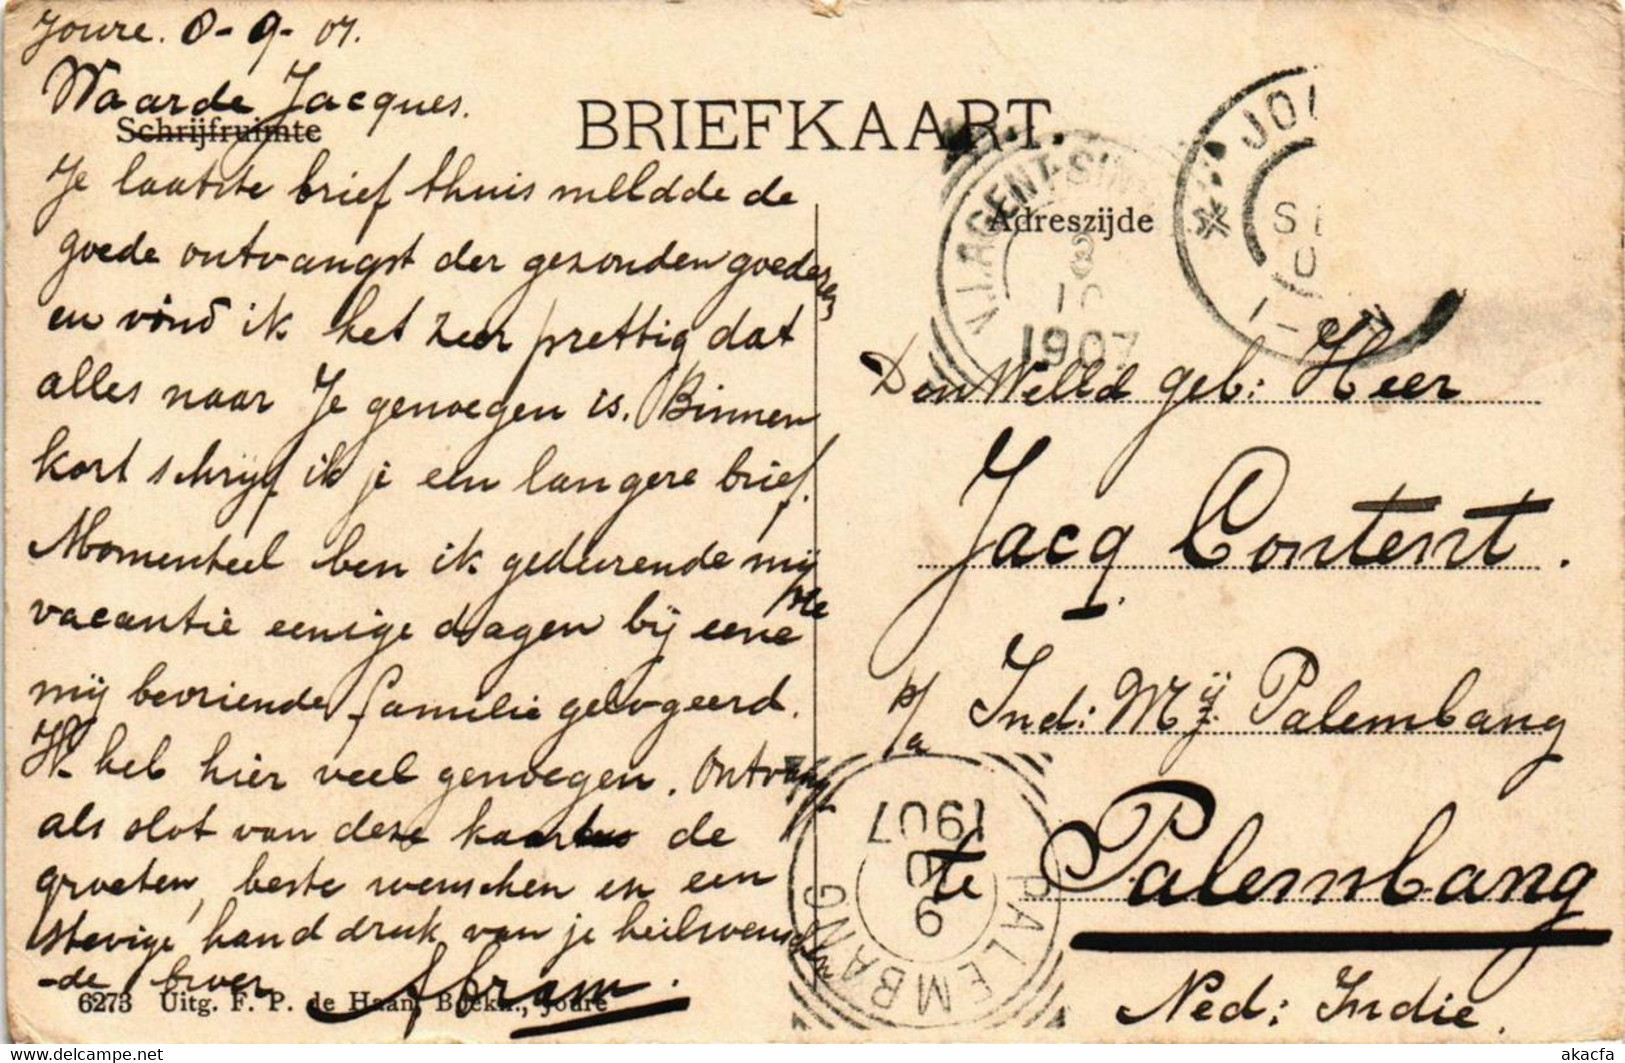 Joure. 8-9-07.
Waarde Jacques.
Schrijfruimte
BRIEFKAART.
Adreszijde
Je laatste brief thuis meldde de
goede ontvangst der gezonden goederen
en vind ik het zeer prettig dat
alles naar Je genoegen is. Binnen
kort schrijf ik je een langere brief.
Momenteel ben ik gedurende mijne
vacantie eenige dagen bij eene
mij bevriende familie gelogeerd.
Ik heb hier veel genoegen. Ontvang
als slot van deze kaart de
groeten, beste wenschen en een
stevige handdruk van je heilwensch
-de broer Abram.
6273 Uitg. F. P. de Haan, Boekh., Joure
Den WelEd geb: Heer
Jacq. Content.
p/a Ind: Mij. Palembang
te Palembang
Ned: Indie.
N.I. AGENT SIN
1907
JOU
SE
PALEMBANG
9
10
1907
akacfa
www.delcampe.net